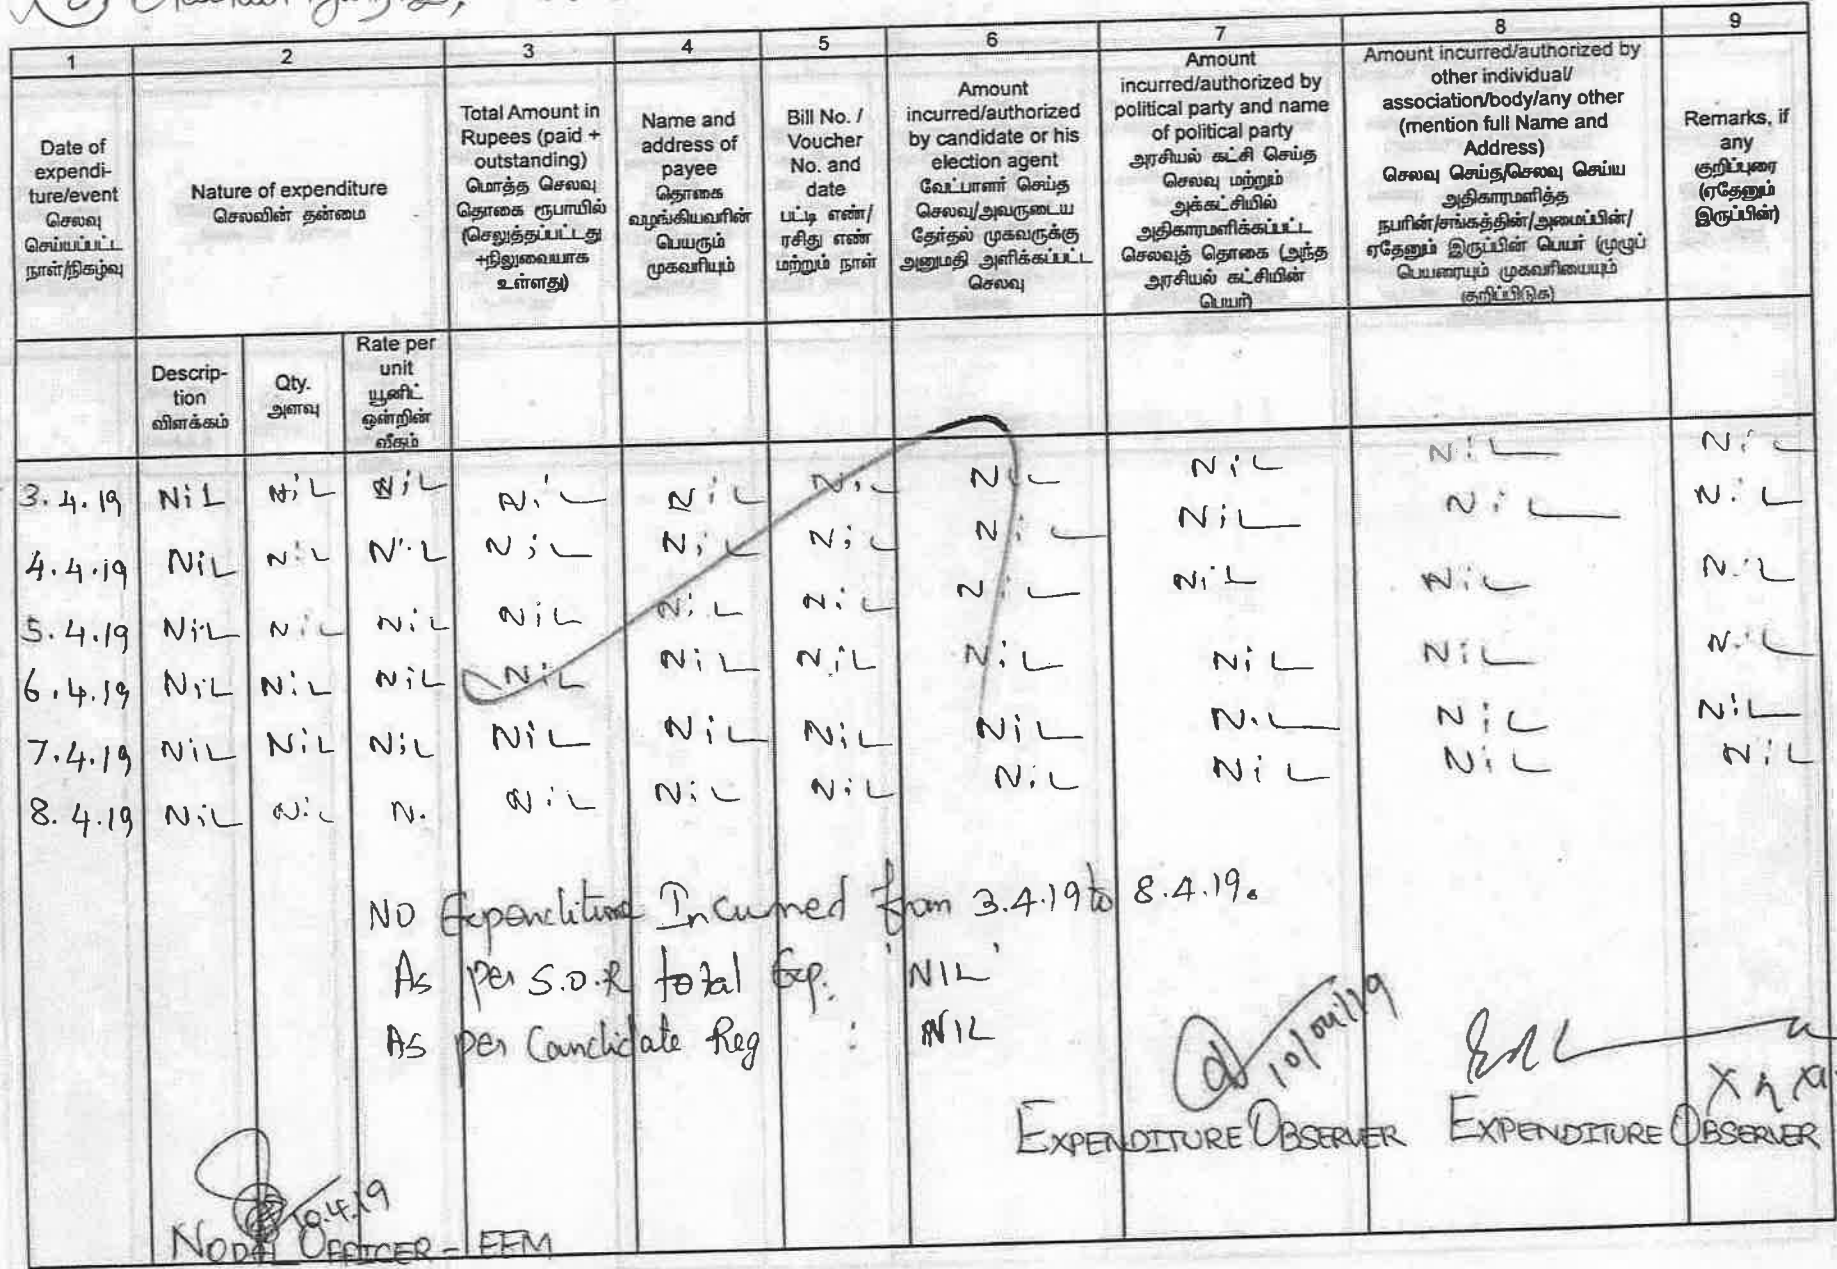 1 2 3 4 5 6 7 8 9
Date of
expendi-
ture/event
செலவு
செய்யப்பட்ட
நாள்/நிகழ்வு
Nature of expenditure
செலவின் தன்மை
Total Amount in
Rupees (paid +
outstanding)
மொத்த செலவு
தொகை ரூபாயில்
(செலுத்தப்பட்டது
+நிலுவையாக
உள்ளது)
Name and
address of
payee
தொகை
வழங்கியவரின்
பெயரும்
முகவரியும்
Bill No. /
Voucher
No. and
date
பட்டி எண்/
ரசிது எண்
மற்றும் நாள்
Amount
incurred/authorized
by candidate or his
election agent
வேட்பாளர் செய்த
செலவு/அவருடைய
தேர்தல் முகவருக்கு
அனுமதி அளிக்கப்பட்ட
செலவு
Amount
incurred/authorized by
political party and name
of political party
அரசியல் கட்சி செய்த
செலவு மற்றும்
அக்கட்சியில்
அதிகாரமளிக்கப்பட்ட
செலவுத் தொகை (அந்த
அரசியல் கட்சியின்
பெயர்)
Amount incurred/authorized by
other individual/
association/body/any other
(mention full Name and
Address)
செலவு செய்த/செலவு செய்ய
அதிகாரமளித்த
நபரின்/சங்கத்தின்/அமைப்பின்/
ஏதேனும் இருப்பின் பெயர் (முழுப்
பெயரையும் முகவரியையும்
குறிப்பிடுக)
Remarks, if
any
குறிப்புரை
(ஏதேனும்
இருப்பின்)
Descrip-
tion
விளக்கம்
Qty.
அளவு
Rate per
unit
யூனிட்
ஒன்றின்
வீதம்
3.4.19 NiL NiL NiL NiL NiL NiL NiL NiL NiL NiL
4.4.19 NiL NiL NiL NiL NiL NiL NiL NiL NiL NiL
5.4.19 NiL NiL NiL NiL NiL NiL NiL NiL NiL NiL
6.4.19 NiL NiL NiL NiL NiL NiL NiL NiL NiL NiL
7.4.19 NiL NiL NiL NiL NiL NiL NiL NiL NiL NiL
8.4.19 NiL NiL N. NiL NiL NiL NiL NiL NiL NiL
NO Expenditure Incurred from 3.4.19 to 8.4.19.
As per S.O.R total Exp. : 'NIL'
As per Candidate Reg : NIL
10/04/19
EXPENDITURE OBSERVER EXPENDITURE OBSERVER
10.4.19
NODAL OFFICER - EEM